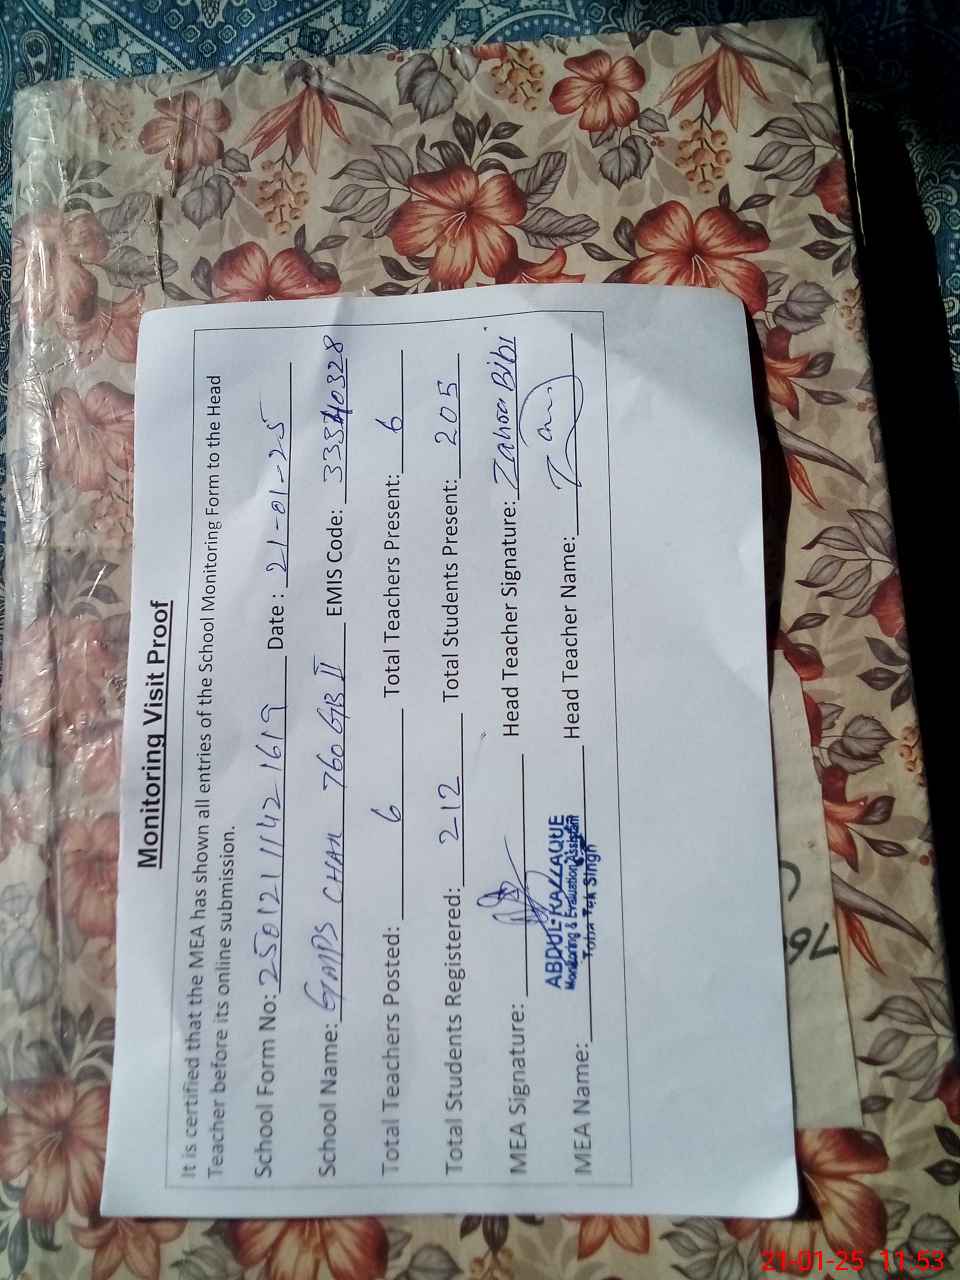 Monitoring Visit Proof
It is certified that the MEA has shown all entries of the School Monitoring Form to the Head
Teacher before its online submission.
School Form No: 250121 1142 1619 Date : 21-01-25
School Name: GMPS CHAK 760 GB II EMIS Code: 33340328
Total Teachers Posted: 6 Total Teachers Present: 6
Total Students Registered: 212 Total Students Present: 205
MEA Signature: Head Teacher Signature: Zahra Bibi
ABDUL-RAZZAQUE
Monitoring & Evaluation Assistant
Toba Tek Singh
MEA Name: Head Teacher Name:
760
21-01-25 11:53